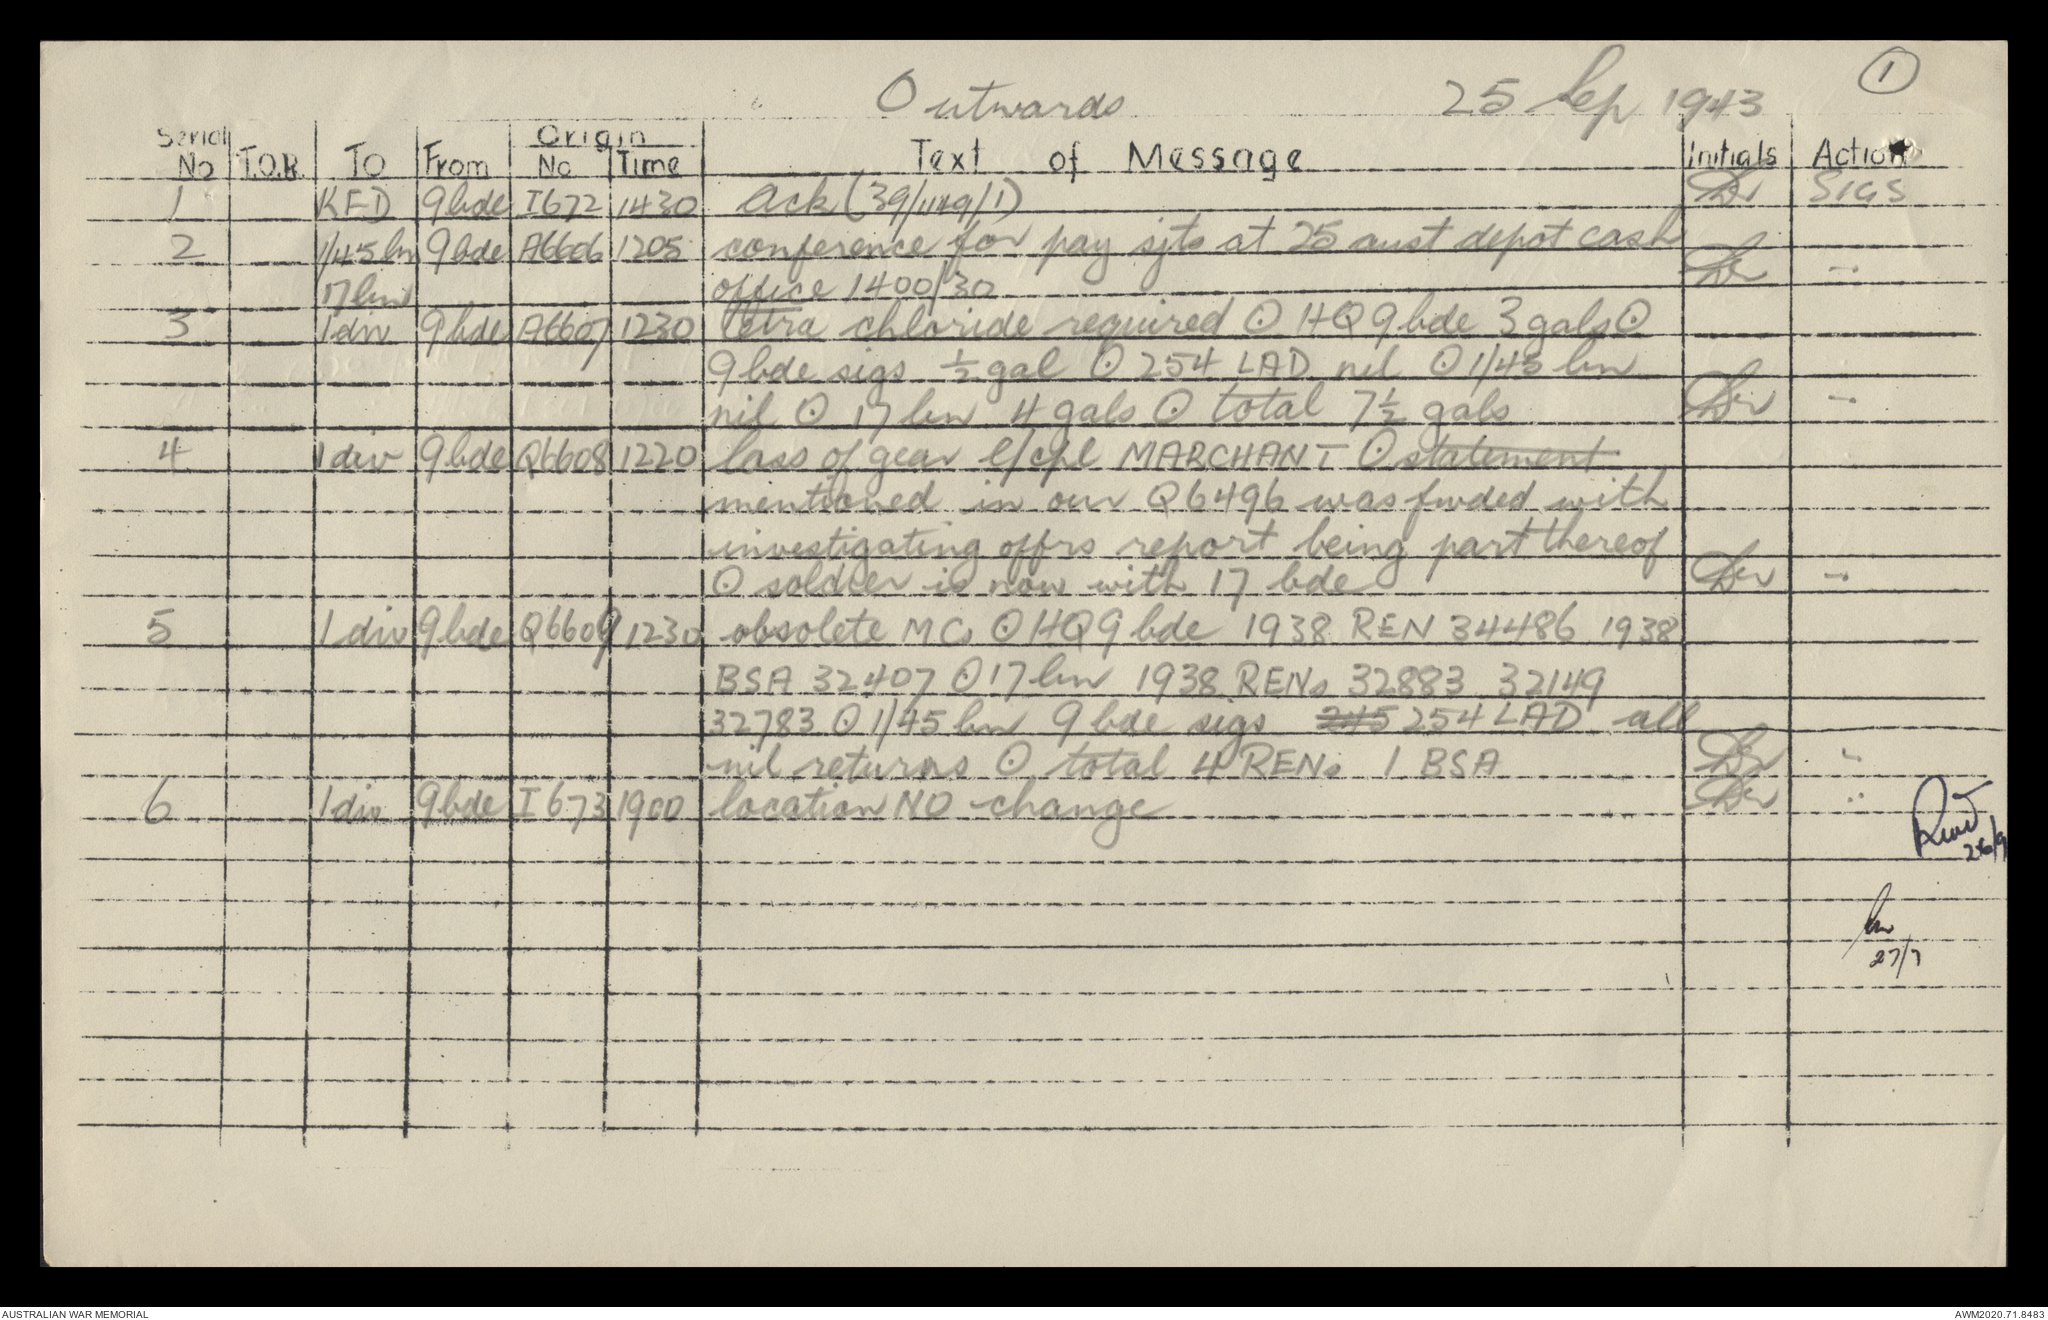 1
Outwards 25 Sep 1943
Serial No T.O.R. TO From Origin No Time Text of Message Initials Action
1 KFD 9 bde I672 1430 Ack (39/1149/1) SIGS
2 1/45 bn 9 bde A6606 1205 conference for pay sjts at 25 aust depot cash
17 bn office 1400/30 -:-
3 1 div 9 bde A6607 1230 tetra chloride required ⊙ HQ 9 bde 3 gals ⊙
9 bde sigs ½ gal ⊙ 254 LAD nil ⊙ 1/45 bn
nil ⊙ 17 bn 4 gals ⊙ total 7½ gals -:-
4 1 div 9 bde Q6608 1220 loss of gear l/cpl MARCHANT ⊙ statement
mentioned in our Q6496 was fwded with
investigating offrs report being part thereof
⊙ soldier is now with 17 bde -:-
5 1 div 9 bde Q6609 1230 obsolete MCs ⊙ HQ 9 bde 1938 REN 34486 1938
BSA 32407 ⊙ 17 bn 1938 RENs 32883 32149
32783 ⊙ 1/45 bn 9 bde sigs 245 254 LAD all
nil returns ⊙ total 4 RENs 1 BSA -:-
6 1 div 9 bde I673 1900 location NO change -:-
26/9
27/7
AUSTRALIAN WAR MEMORIAL AWM2020.71.8483